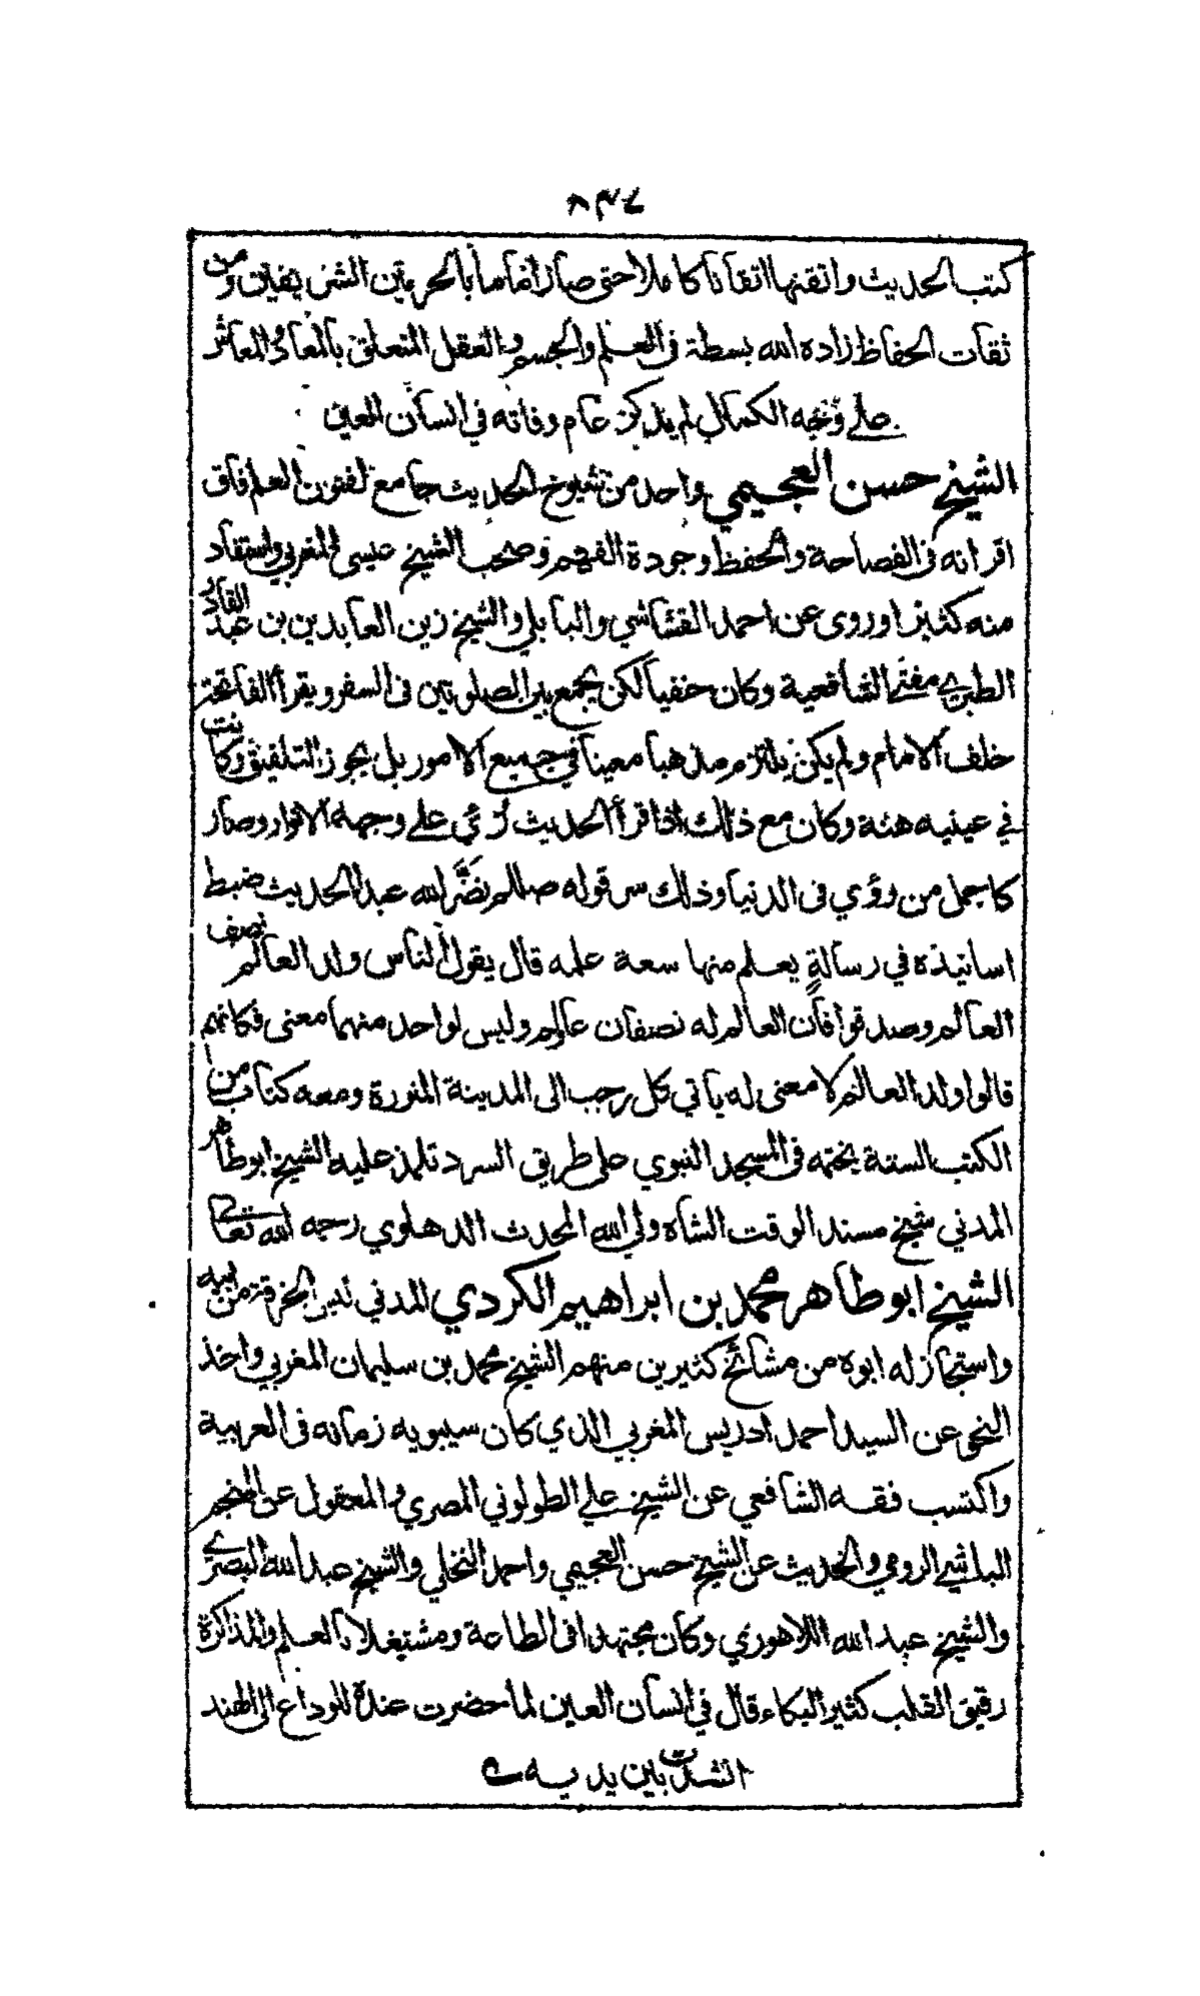 ٨٤٧
كتب الحديث واتقنها اتقانا كاملا حتى صار اماما بالحرمين الشريفين ومن
ثقات الحفاظ زاده الله بسطة في العلم والجسم والعقل المتعلق بالمعاد والمعاش
على وجه الكمال لم يذكر عام وفاته في انسان العين
الشيخ حسن العجيمي واحد من شيوخ الحديث جامع لفنون العلم فاق
اقرانه في الفصاحة والحفظ وجودة الفهم وصحب الشيخ عيسى المغربي واستفاد
منه كثيرا وروى عن احمد القشاشي والبابلي والشيخ زين العابدين بن عبد القادر
الطبري مفتي الشافعية وكان حنفيا لكن يجمع بين الصلوتين في السفر ويقرأ الفاتحة
خلف الامام ولم يكن يلتزم مذهبا معينا في جميع الامور بل يجوز التلفيق وكانت
في عينيه هنة وكان مع ذلك اذا قرأ الحديث رئي على وجهه الانوار وصار
كاجمل من رؤي في الدنيا وذلك سر قوله صللم نضّر الله عبدا الحديث ضبط
اسانيذه في رسالةٍ يعلم منها سعة علمه قال يقول الناس ولد العالم نصف
العالم وصدقوا فان العالم له نصفان عالم وليس لواحد منهما معنى فكانهم
قالوا ولد العالم لا معنى له ياتي كل رجب الى المدينة المنورة ومعه كتاب من
الكتب الستة يختمه في المسجد النبوي على طريق السرد تلمذ عليه الشيخ ابوطاهر
المدني شيخ مسند الوقت الشاه ولي الله المحدث الدهلوي رحمه الله تعالى
الشيخ ابوطاهر محمد بن ابراهيم الكردي المدني لبس الخرقة من ابيه
واستجاز له ابوه من مشائخ كثيرين منهم الشيخ محمد بن سليمان المغربي واخذ
النحو عن السيد احمد ادريس المغربي الذي كان سيبويه زمانه في العربية
واكتسب فقه الشافعي عن الشيخ علي الطولوني المصري والمعقول عن المنجم
الباشي الرومي والحديث عن الشيخ حسن العجيمي واحمد النخلي والشيخ عبد الله البصري
والشيخ عبد الله اللاهوري وكان مجتهدا في الطاعة ومشتغلا بالعلم والمذاكرة
رقيق القلب كثير البكاء قال في انسان العين لما حضرت عنده للوداع الى الهند
انشدت بين يديه ے